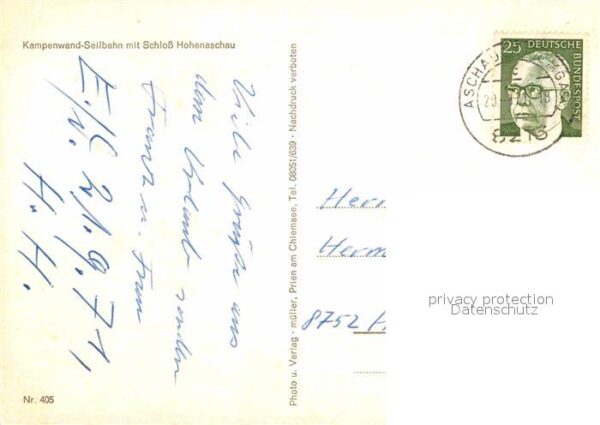 Kampenwand-Seilbahn mit Schloß Hohenaschau
Viele Grüße aus
dem Urlaub senden
Frantz u. Frau
E./S. 21.9.71,
H. H.
Nr. 405
Photo u. Verlag · müller, Prien am Chiemsee, Tel. 08051/639 · Nachdruck verboten
25 DEUTSCHE
BUNDESPOST
ASCHAU
8213
Herr
Herm
8752
privacy protection
Datenschutz